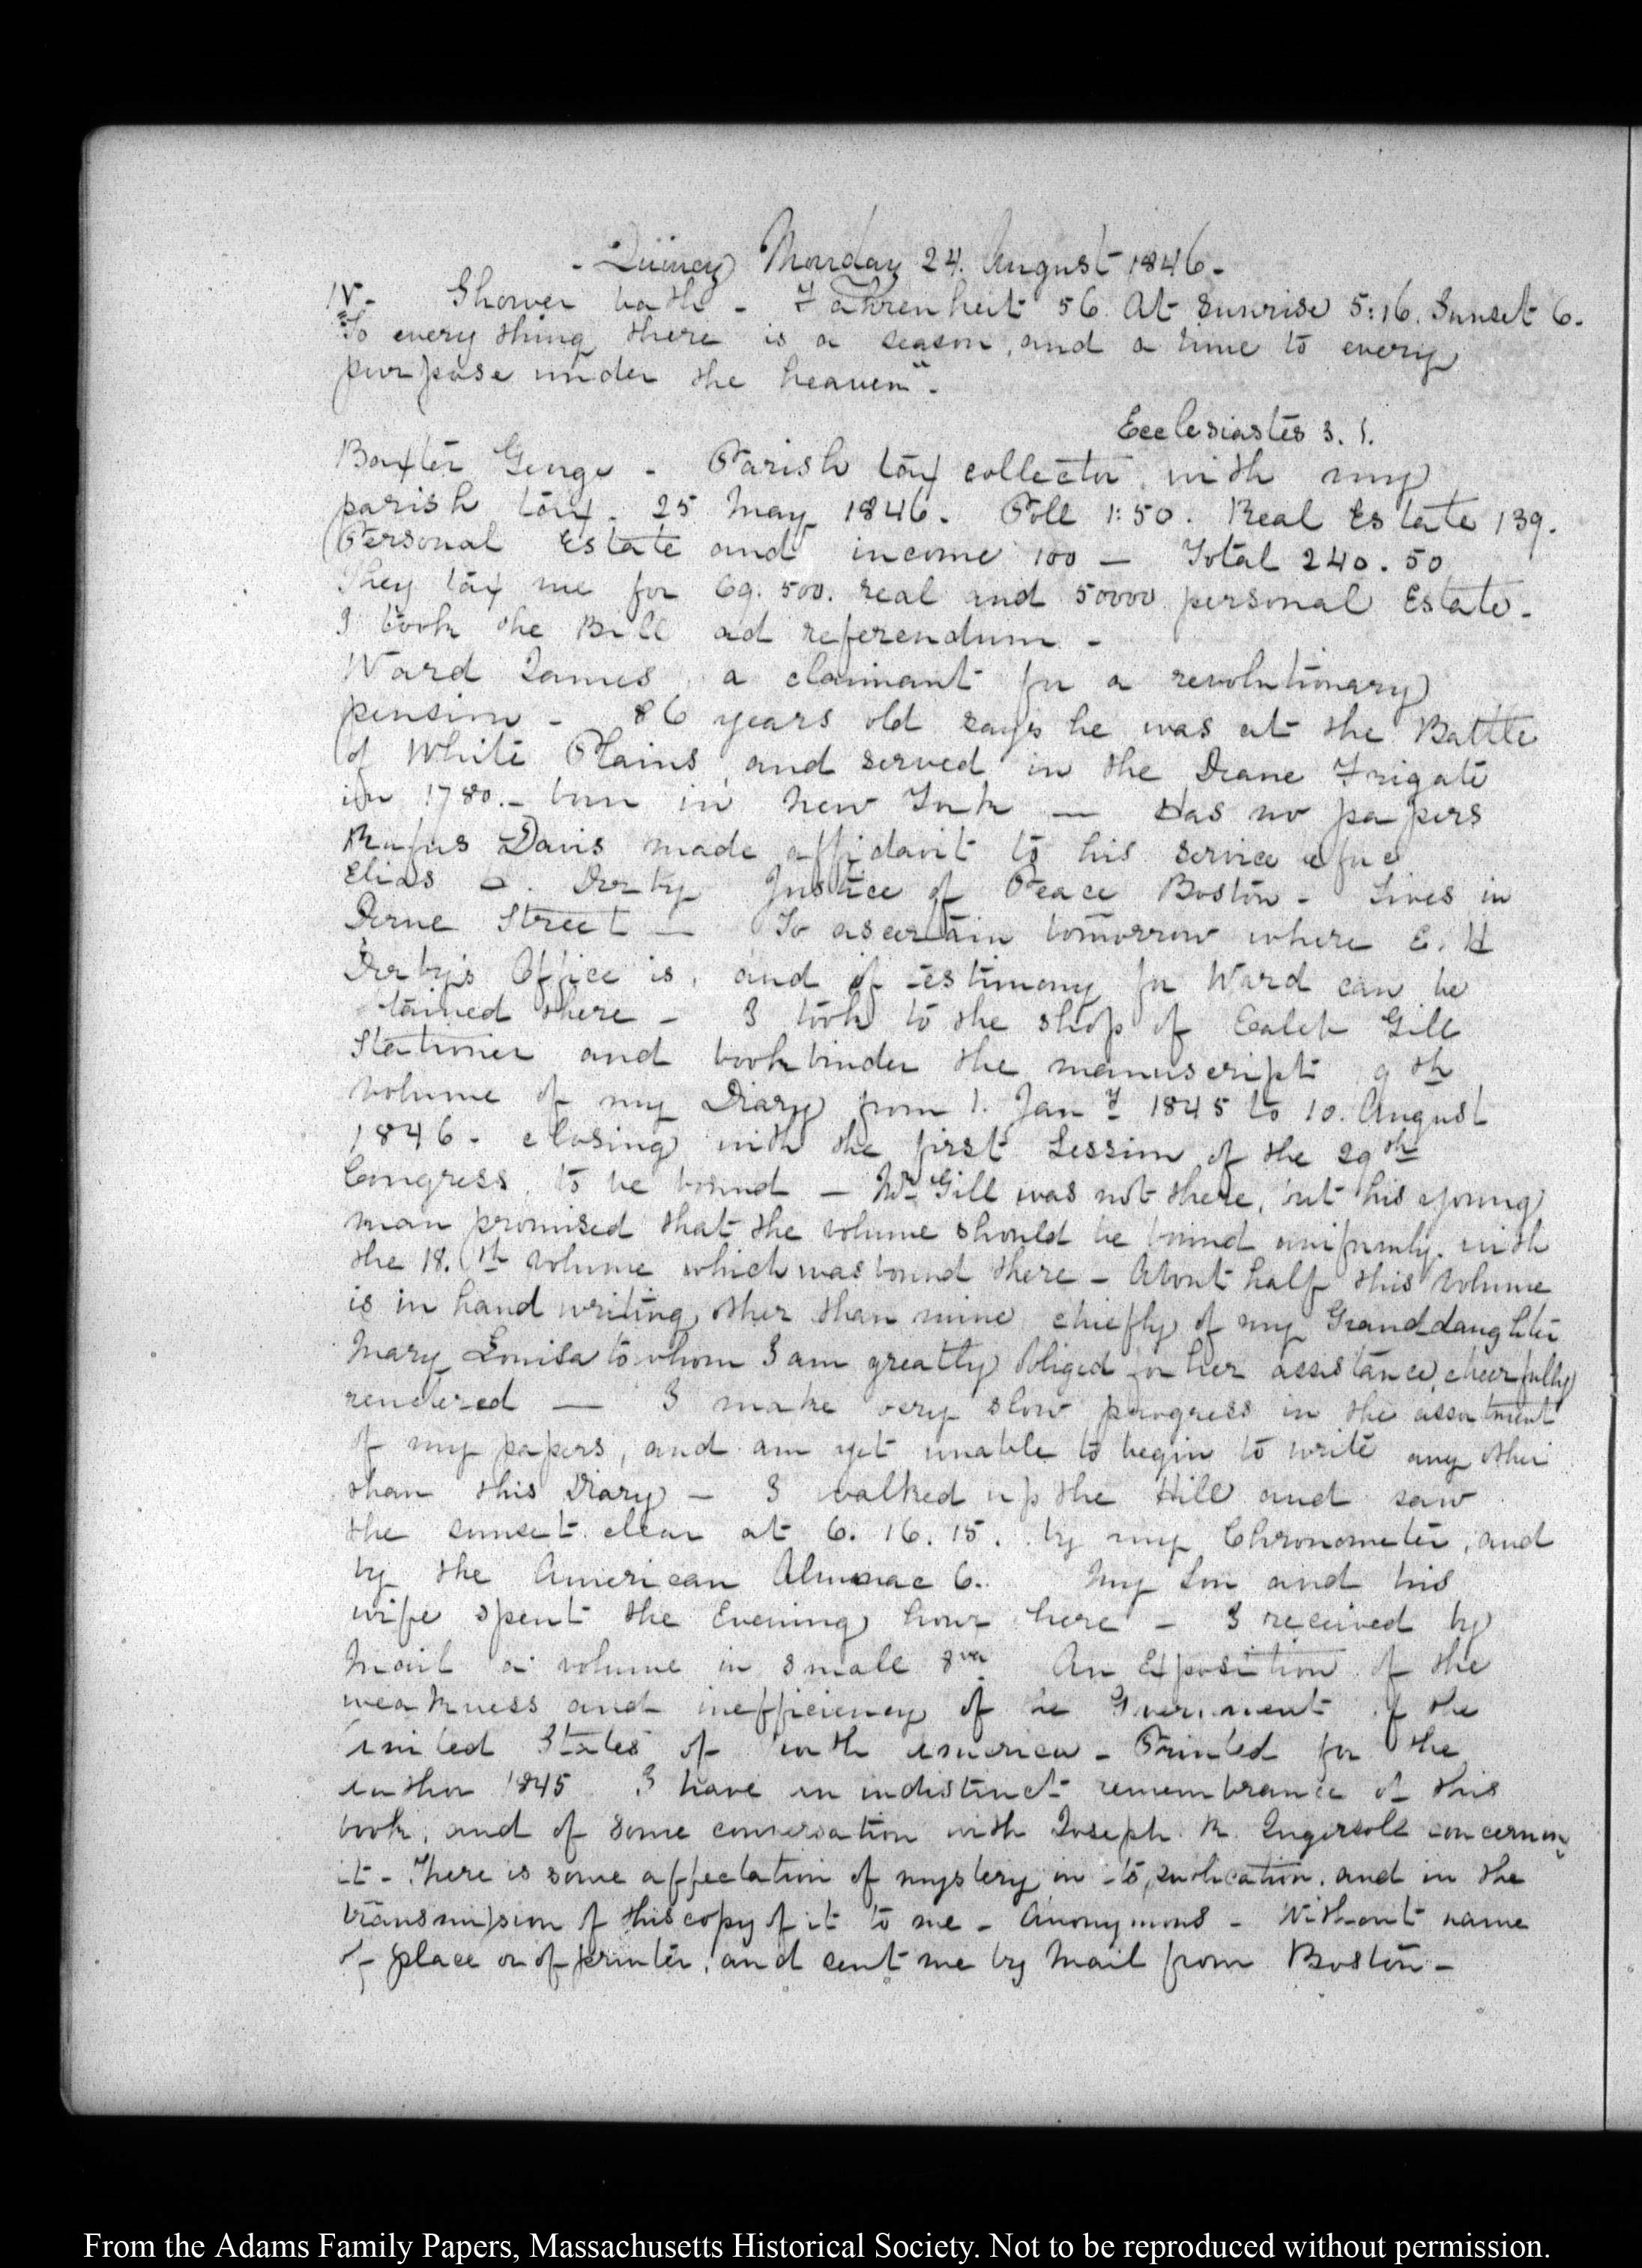 - Quincy Monday 24. August 1846 -
IV - Shower bath - Fahrenheit 56. At sunrise 5:16. Sunset 6.
"To every thing there is a season, and a time to every
purpose under the heaven" -
Ecclesiastes 3. 1.
Baxter George - Parish tax collector, with my
parish tax. 25 May 1846. Poll 1:50. Real Estate 139.
Personal Estate and income 100 — Total 240.50
They tax me for 69.500. real and 50000 personal Estate -
I took the Bill ad referendum -
Ward James, a claimant for a revolutionary
pension - 86 years old says he was at the Battle
of White Plains, and served in the Deane Frigate
in 1780. - born in New York — Has no papers
Rufus Davis made affidavit to his service before
Elias H. Derby Justice of Peace Boston - Lives in
Derne Street — To ascertain tomorrow where E. H
Derby's Office is, and if testimony for Ward can be
tained there - I took to the shop of Caleb Gill
Stationer and bookbinder the manuscript 9th
volume of my Diary from 1. Jany 1845 to 10. August
1846 - closing with the first Session of the 29th
Congress, to be bound — Mr Gill was not there, but his young
man promised that the volume should be bound uniformly with
the 18.th volume which was bound there - About half this volume
is in hand writing other than mine chiefly of my Granddaughter
Mary Louisa to whom I am greatly obliged for her assistance, cheerfully
rendered — I make very slow progress in the assortment
of my papers, and am yet unable to begin to write any other
than this Diary - I walked up the Hill and saw
the sunset clear at 6. 16. 15. by my Chronometer, and
by the American Almanac 6. My Son and his
wife spent the Evening hour here - I received by
Mail a volume in small 8vo. An Exposition of the
weakness and inefficiency of the Government of the
United States of North America - Printed for the
author 1845 I have an indistinct remembrance of this
book, and of some conversation with Joseph R. Ingersoll concerning
it - There is some affectation of mystery in its publication, and in the
transmission of this copy of it to me - Anonymous - Without name
of place or of printer, and sent me by Mail from Boston -
From the Adams Family Papers, Massachusetts Historical Society. Not to be reproduced without permission.